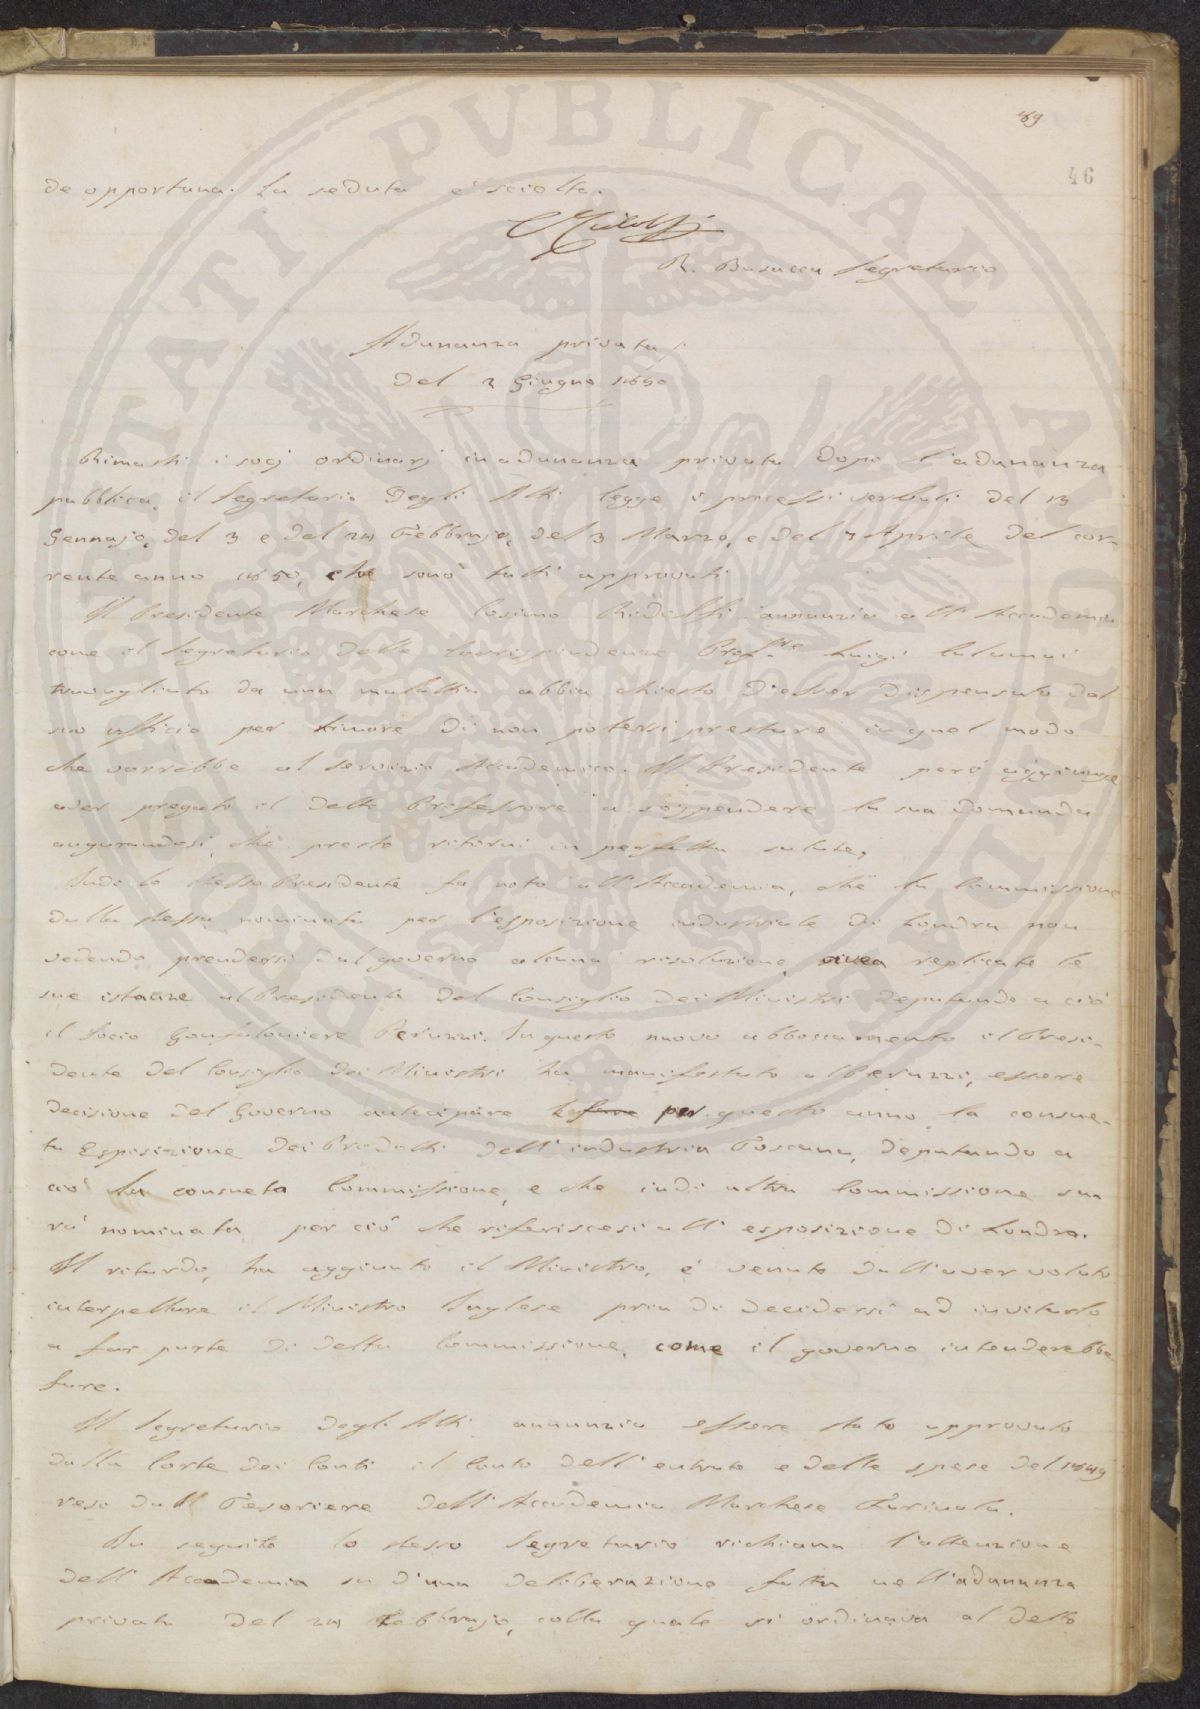 89
46
de opportuna. La seduta è sciolta.
C Ridolfi
R. Busacca Segretario
Adunanza privata
del 2 Giugno 1850
Rimasti i socj ordinarj in adunanza privata dopo l'adunanza
pubblica, il Segretario degli Atti legge i processi verbali del 13
Gennajo, del 3 e del 24 Febbrajo, del 3 Marzo, e del 7 Aprile del cor-
rente anno 1850, che sono tutti approvati.
Il Presidente Marchese Cosimo Ridolfi annunzia all'Accademia
come il Segretario delle Corrispondenze Prof.re Luigi Calamai
travagliato da una malattia abbia chiesto d'esser dispensato dal
suo ufficio per timore di non potersi prestare in quel modo
che vorrebbe al servizio Accademico. Il Presidente però aggiunge
aver pregato il detto Professore a sospendere la sua domanda
augurandosi che presto ritorni in perfetta salute.
Indi lo stesso Presidente fa noto all'Accademia, che la Commissione
dalla stessa nominata per l'esposizione industriale di Londra non
vedendo prendersi dal governo alcuna risoluzione, avea replicate le
sue istanze al Presidente del Consiglio dei Ministri deputando a ciò
il Socio Gonfaloniere Peruzzi. In questo nuovo abboccamento il Presi-
dente del Consiglio dei Ministri ha manifestato al Peruzzi, essere
decisione del Governo anticipare per questo anno la consue-
ta Esposizione dei Prodotti dell'industria Toscana, deputando a
ciò la consueta Commissione, e che indi altra Commissione sa
rà nominata per ciò che riferiscesi all'esposizione di Londra.
Il ritardo, ha aggiunto il Ministro, è venuto dall'aver voluto
interpellare il Ministro Inglese pria di decidersi ad invitarlo
a far parte di detta Commissione, come il governo intenderebbe
fare.
Il Segretario degli Atti annunzia essere stato approvato
dalla Corte dei Conti il Conto dell'entrate e delle spese del 1849
reso dal Tesoriere dell'Accademia Marchese Farinola.
In seguito lo stesso Segretario richiama l'attenzione
dell'Accademia su d'una deliberazione fatta nell'adunanza
privata del 24 Febbrajo, colla quale si ordinava al detto